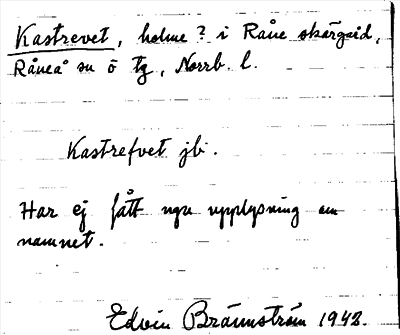 Kastrevet, holme? i Råne skärgård,
Råneå sn ö tg, Norrb. l.
Kastrefvet jb.
Har ej fått ngn upplysning om
namnet.
Edvin Brännström 1942.